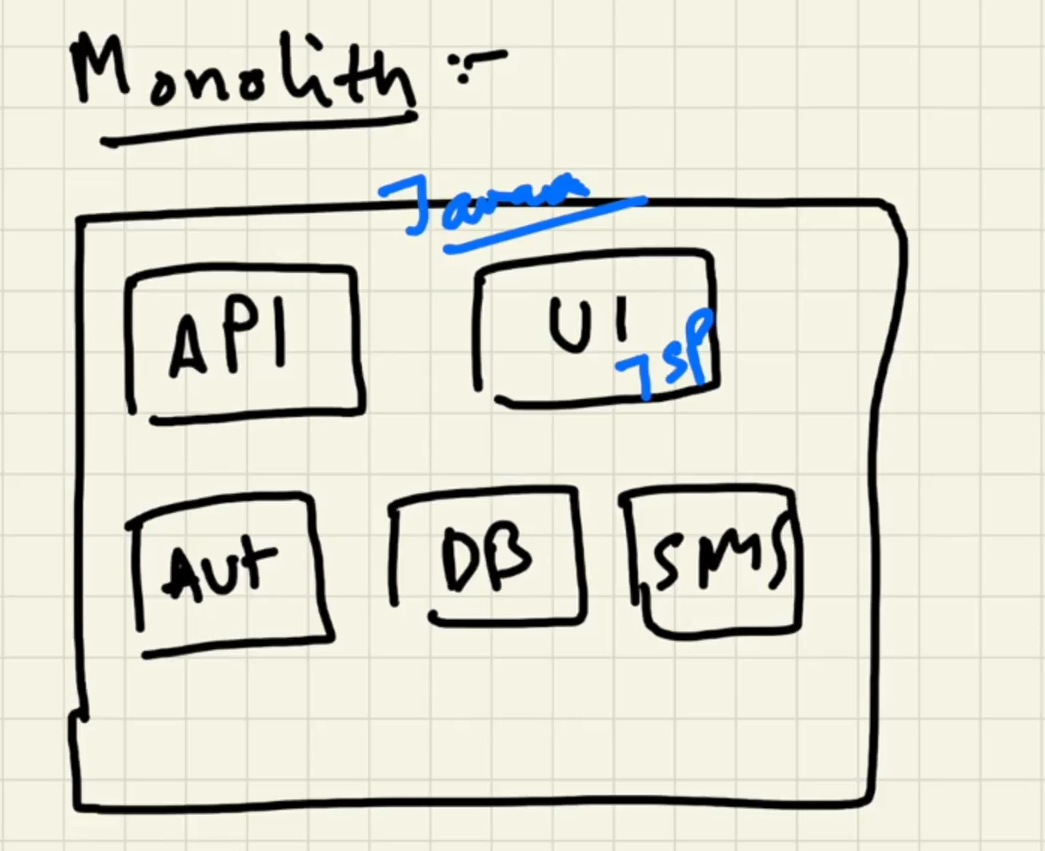 Monolith :-
Java
API
UI
JSP
Aut
DB
SMS